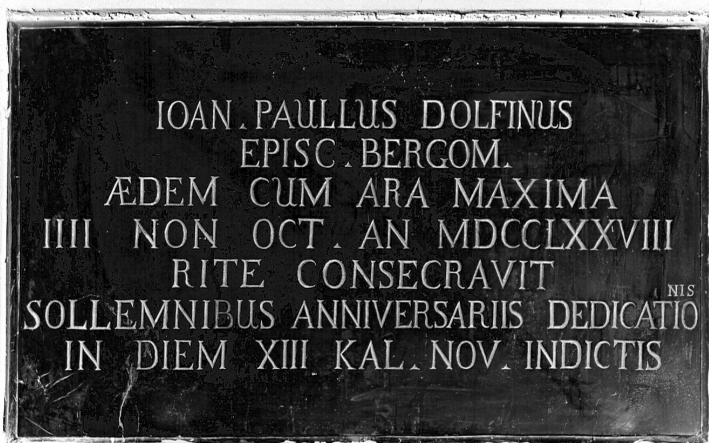 IOAN. PAULLUS DOLFINUS
EPISC. BERGOM.
ÆDEM CUM ARA MAXIMA
IIII NON OCT. AN MDCCLXXVIII
RITE CONSECRAVIT
SOLLEMNIBUS ANNIVERSARIIS DEDICATIONIS
IN DIEM XIII KAL. NOV. INDICTIS